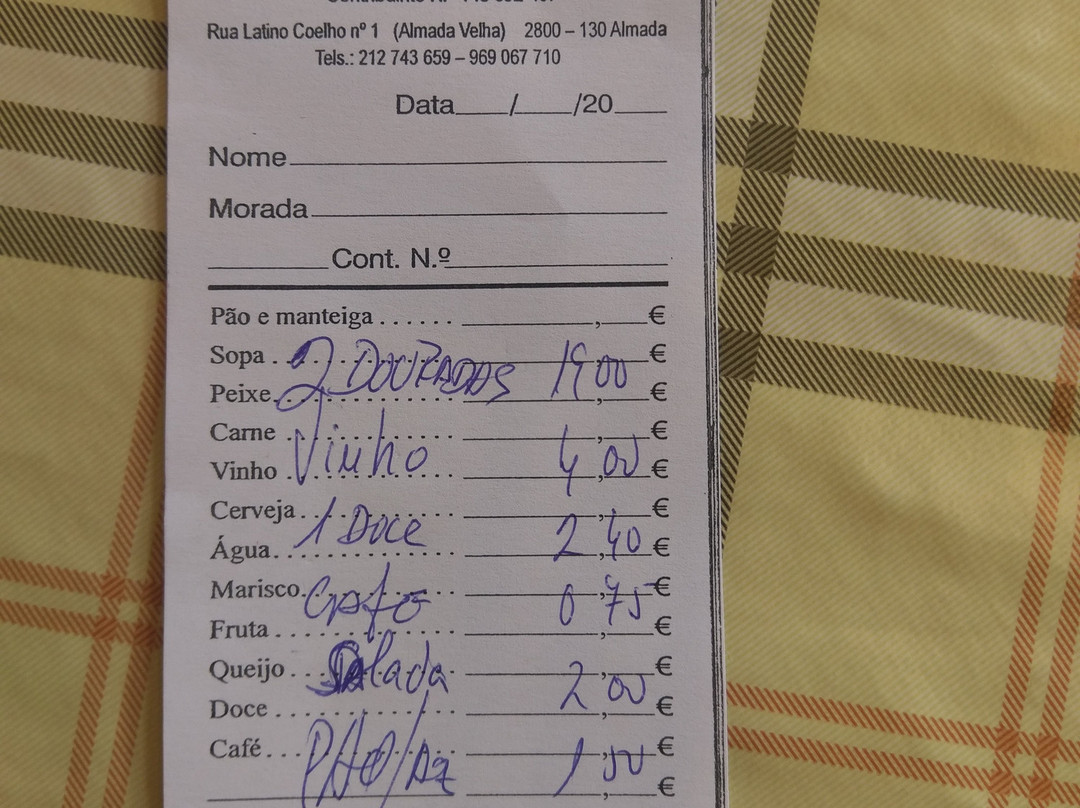 Rua Latino Coelho nº 1 (Almada Velha) 2800 – 130 Almada
Tels.: 212 743 659 – 969 067 710
Data____/____/20____
Nome
Morada
Cont. N.º
Pão e manteiga ...... ,  €
Sopa . , €
2 DOURADAS 19,00
Peixe. , €
Carne . , €
Vinho 4,00
Vinho . , €
Cerveja.. , €
1 DOCE 2,40
Água.. , €
Marisco. , €
Café 0,75
Fruta .... , €
Queijo .. , €
Salada 2,00
Doce .... , €
Café... , €
PÃO 1,50
, €